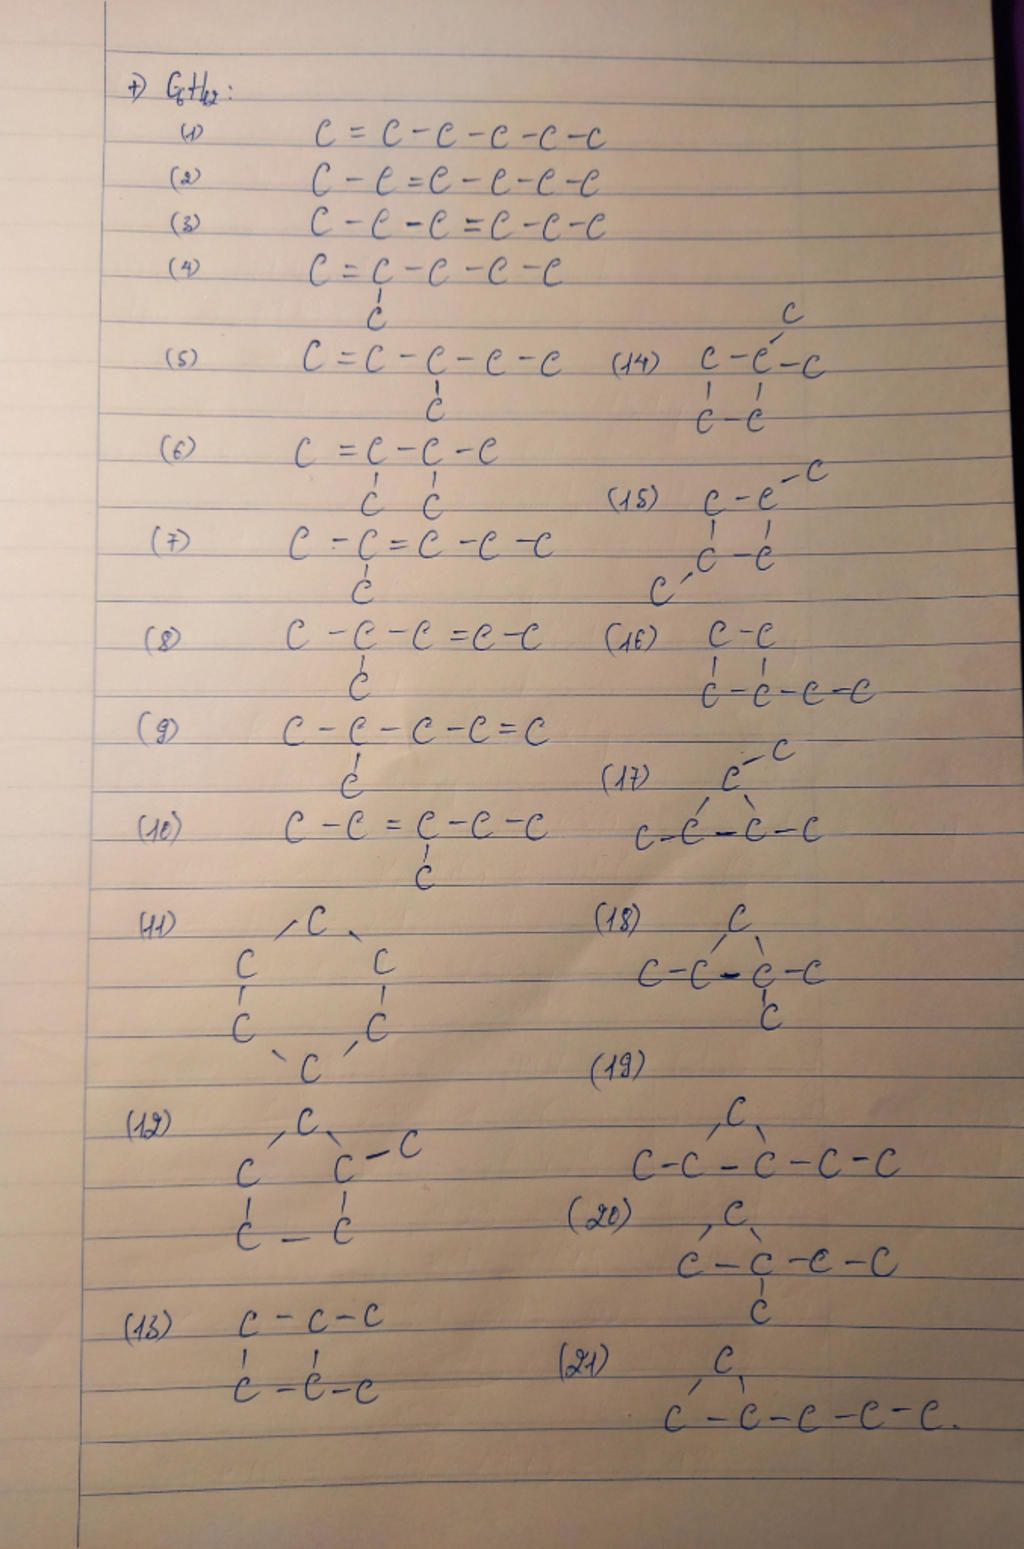 +) C₆H₁₂:
(1) C = C - C - C - C - C
(2) C - C = C - C - C - C
(3) C - C - C = C - C - C
(4) C = C - C - C - C
C
(5) C = C - C - C - C
C
(6) C = C - C - C
C C
(7) C - C = C - C - C
C
(8) C - C - C = C - C
C
(9) C - C - C - C = C
C
(10) C - C = C - C - C
C
(11) C
C C
C C
C
(12) C
C C - C
C - C
(13) C - C - C
C - C - C
(14) C
C - C - C
C - C
(15) C
C - C
C - C
C
(16) C - C
C - C - C - C
(17) C - C
C - C - C - C
(18) C
C - C - C - C
C
(19)
C
C - C - C - C - C
(20) C
C - C - C - C
C
(21) C
C - C - C - C - C.